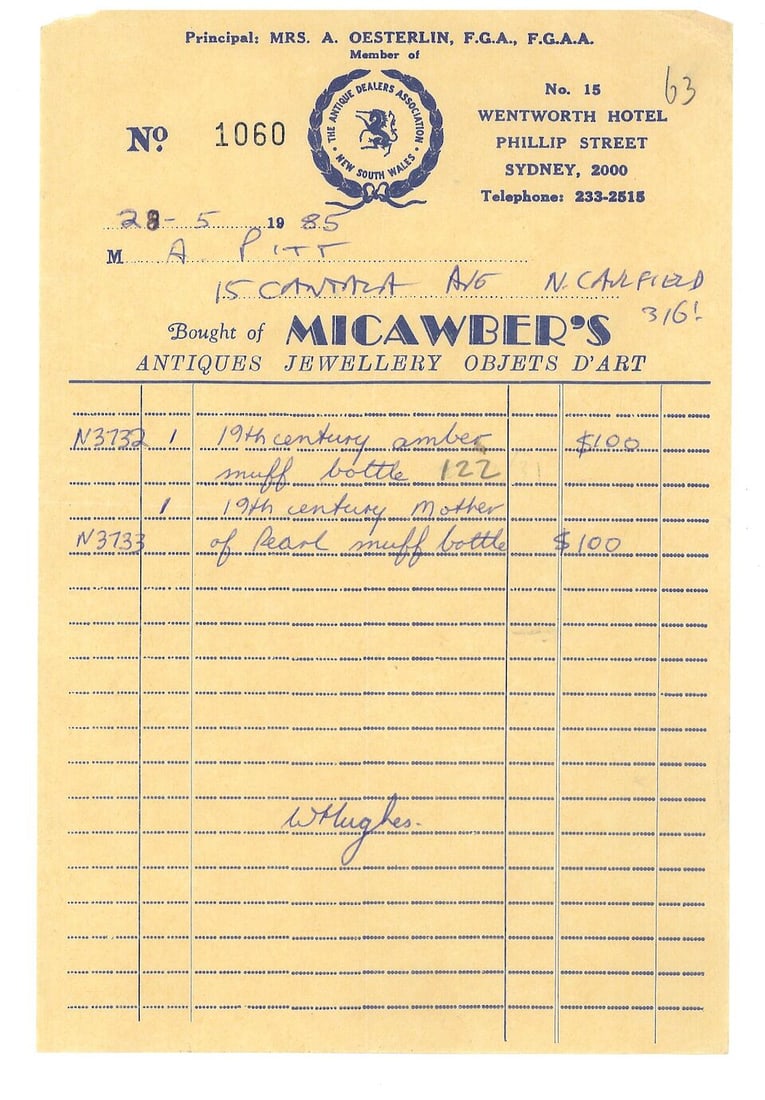 Principal: MRS. A. OESTERLIN, F.G.A., F.G.A.A.
Member of
THE ANTIQUE DEALERS ASSOCIATION
• NEW SOUTH WALES •
No. 15
63
WENTWORTH HOTEL
PHILLIP STREET
SYDNEY, 2000
Telephone: 233-2515
Nº 1060
28-5 1985
M A. PITT
15 CANTALA AVE N. CAULFIELD
3161
Bought of MICAWBER'S
ANTIQUES JEWELLERY OBJETS D'ART
N3732 1 19th century amber $100
snuff bottle 122
1 19th century Mother
N3733 of Pearl snuff bottle $100
WHughes.